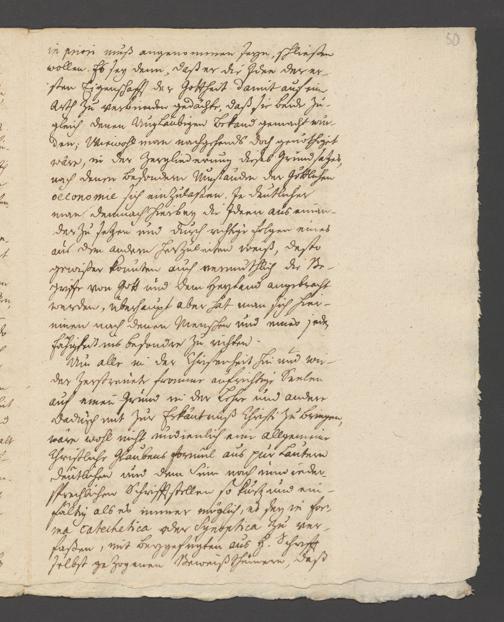 50
in priori muß angenommen seyn, schließen
wollen. Es sey denn, daß er die Ideen der er-
sten Eigenschafft der Gottheit damit auf ein
Arth zu verbinden gedächte, daß sie beide zu-
gleich denen Unglaubigen bekand gemacht wür-
den; Wiewohl man nachgehends doch genöthiget
wäre, in der Zergliederung dieses Grundsatzes,
nach denen besondern Umständen der Göttlichen
oeconomie sich einzulaßen. Je deutlicher
man demnach hierbey die Ideen aus einan-
der zu setzen und durch richtige folgen eines
aus dem andern herzuleiten weiß, desto
gewißer könnten auch vermuthlich die Be-
griffe von Gott und dem Heyland angebracht
werden, überhaupt aber hat man sich hier-
innen nach denen Menschen und eines jeden
fähigkeit ins besondere zu richten.
Um alle in der Christenheit hin und wie-
der zerstreute fromme aufrichtige Seelen
auf einen Grund in der Lehre und andere
dadurch mit zur Erkäntniß Christi zu bringen,
wäre wohl nicht undienlich eine allgemeine
Christliche Glaubens formul aus pur lautern
deutlichen und dem Sinn nach unwieder-
sprechlichen Schrifftstellen so kurtz und ein-
fältig als es immer möglich, es sey in for-
ma catechetica oder Synoptica zu ver-
faßen, mit beygefügten aus H. Schrifft
selbst gezogenen Beweißthümern, daß